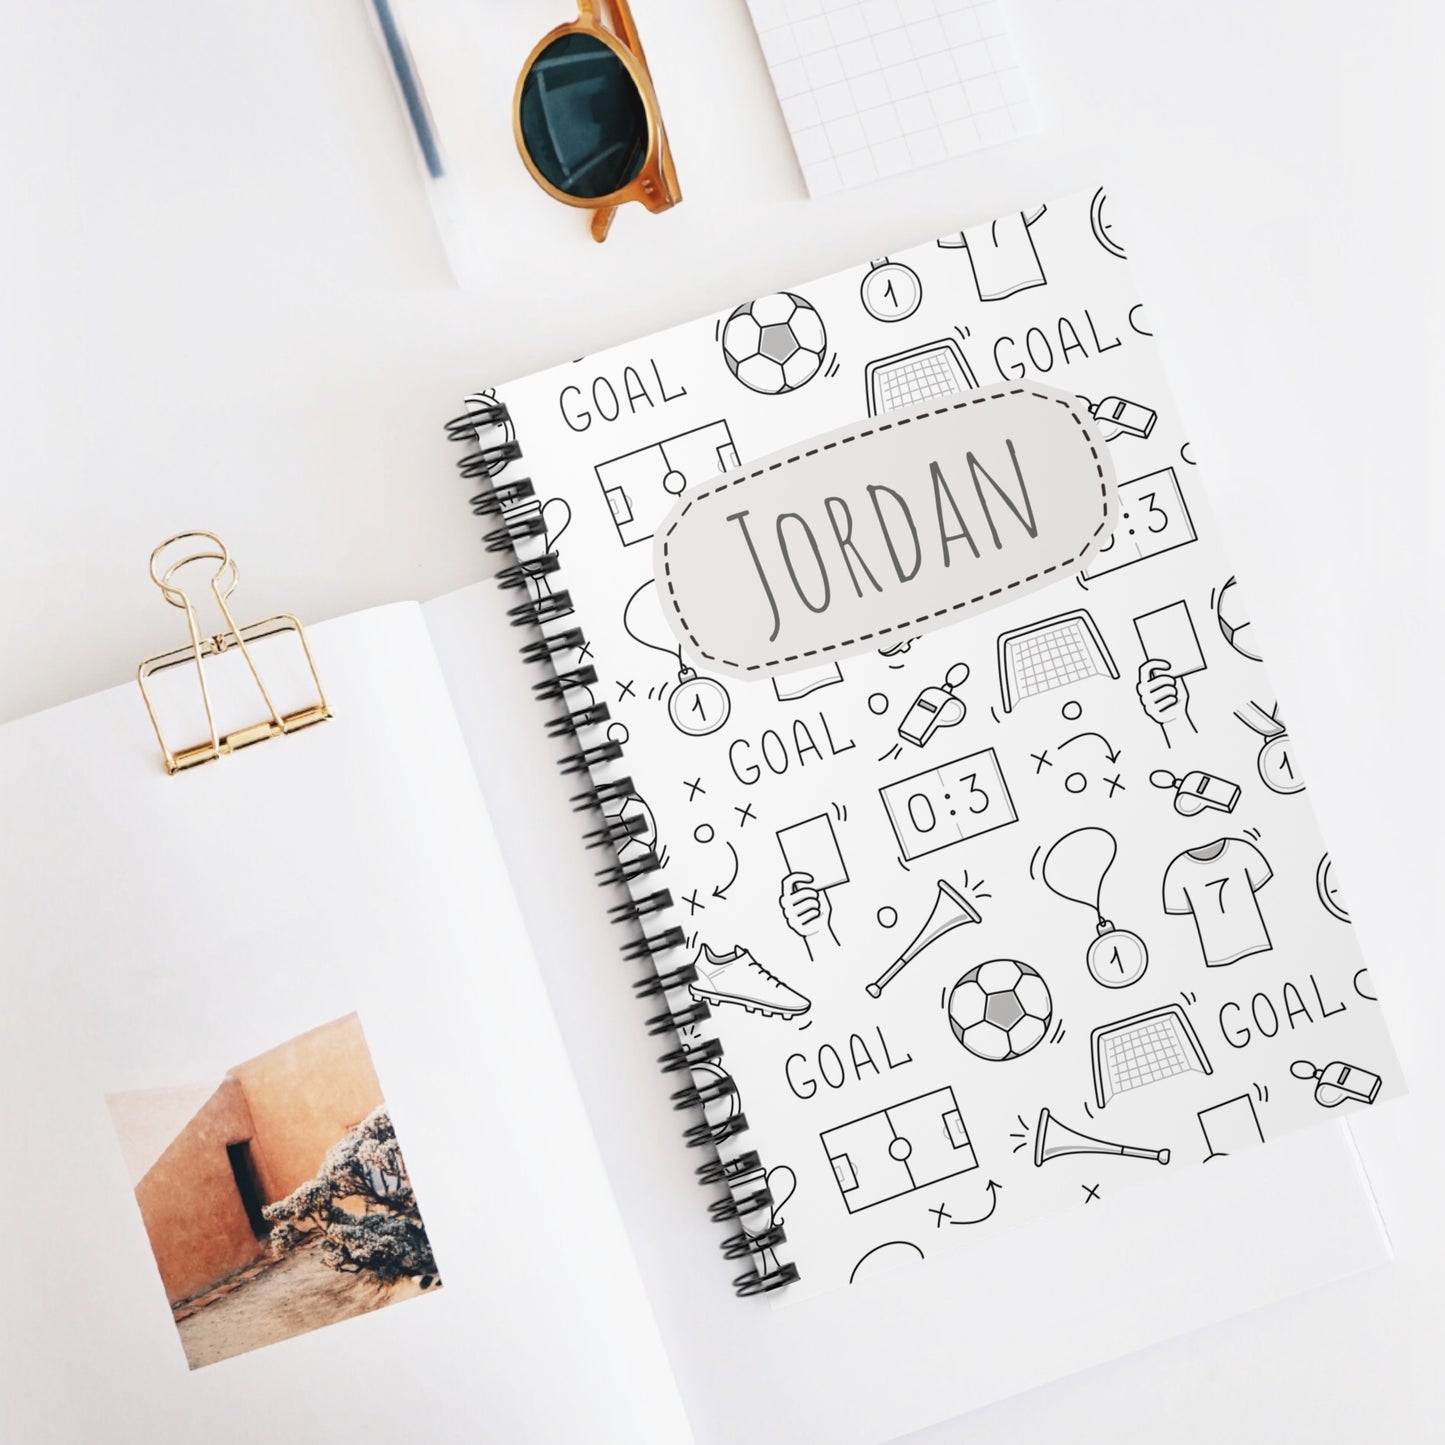 7
1
GOAL
GOAL
JORDAN
:3
1
GOAL
0:3
1
7
1
GOAL
GOAL